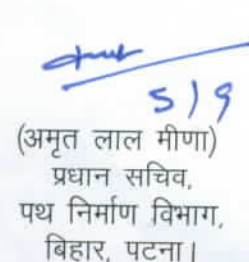 5/9
(अमृत लाल मीणा)
प्रधान सचिव,
पथ निर्माण विभाग,
बिहार, पटना।